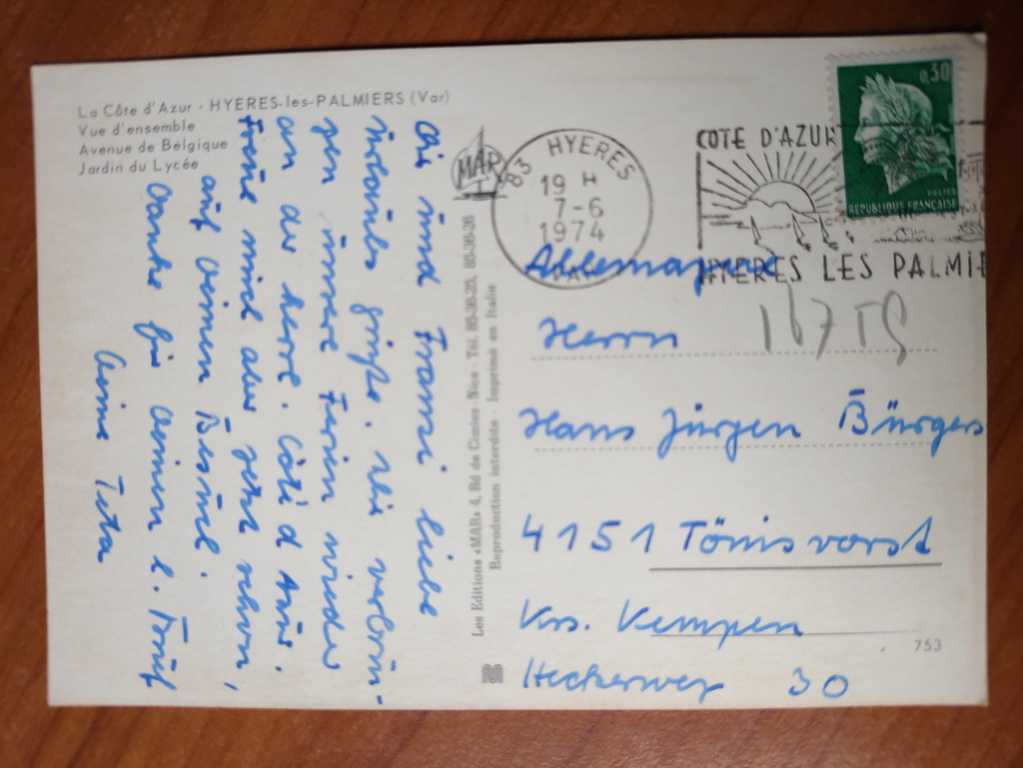 La Côte d'Azur - HYERES-les-PALMIERS (Var)
Vue d'ensemble
Avenue de Belgique
Jardin du Lycée
und Franzi liebe
Urlaubs grüße. Wir verbrin-
gen unsere Ferien wieder
an der herrl. Côte d Azur.
Freue mich aber jetzt schon,
auf Deinen Besuch.
Danke für Deinen l. Brief
Deine Teta
MAR
Les Editions «MAR» 4, Bd de Cimiez - Nice - Tél. 85-36-25, 85-36-26
Reproduction interdite - Imprimé en Italie
83 HYERES
19 H
7-6
1974
VAR
COTE D'AZUR
HYERES LES PALMIE
0,30
POSTES
REPUBLIQUE FRANÇAISE
Allemagne
16759
Herrn
Hans Jürgen Bürgers
4151 Tönisvorst
Krs. Kempen
753
Heckerweg 30